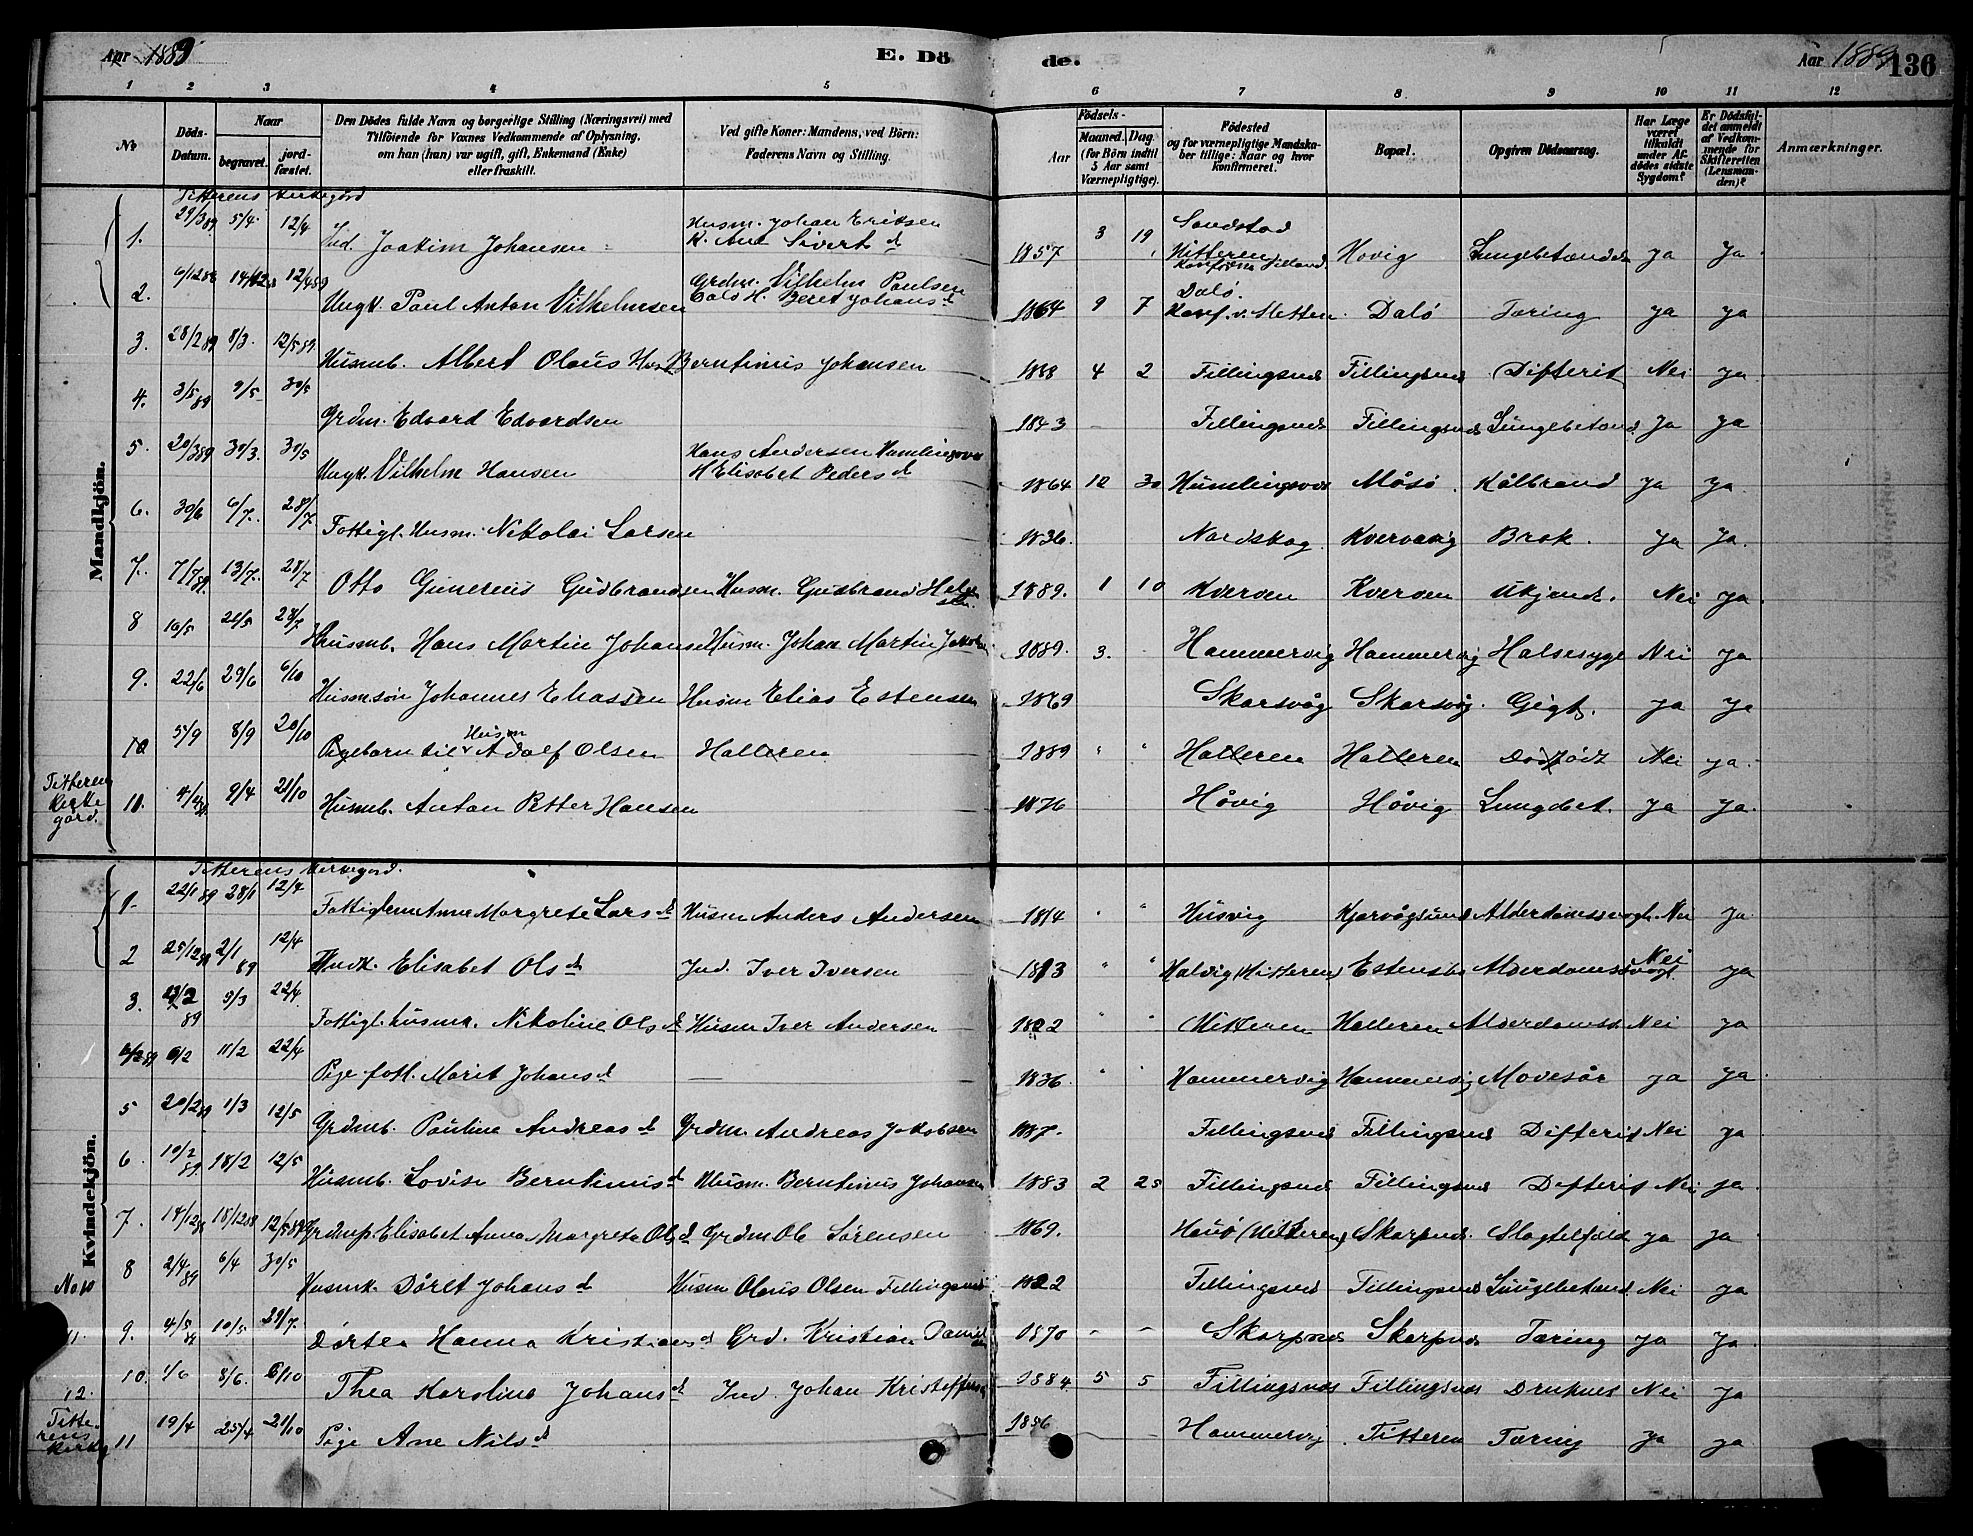 Aar 1889 E. Dö de. Aar 1889 136
1 2 3 4 5 6 7 8. 9 10 11 12
No Döds-Datum. Naar begravet. jordfæstet. Den Dödes fulde Navn og borgerlige Stilling (Næringsvei) med Tilföiende for Voxnes Vedkommende af Oplysning, om han (hun) var ugift, gift, Enkemand (Enke) eller fraskilt. Ved gifte Koner: Mandens, ved Börn: Faderens Navn og Stilling. Födsels- Aar Maaned. Dag. (for Börn indtil 5 Aar samt Værnepligtige). Födested og for værnepligtige Mandskaber tillige: Naar og hvor konfirmeret. Bopæl. Opgiven Dödsaarsag. Har Læge været tilkaldt under Afdödes sidste Sygdom? Er Dödsfaldet anmeldt af Vedkommende for Skifteretten (Lensmanden)? Anmærkninger.
Mandkjön.
Titterens Kirkegård
1. 29/3 89 5/4 12/4 Ind. Joakim Johansen Husm. Johan Eriksen K. Ane Sivert d 1857 3 19 Sandstad Hitteren Hovig Lungebetændelse ja ja
2. 6/12 88 14/12 12/4 89 Ungk. Paul Anton Vilhelmsen Grdm. Vilhelm Paulsen Dalö H. Beret Johans d 1864 9 7 Dalö. Konf. v. Sletten. Dalö Tæring ja ja
3. 28/2 89 8/3. 12/5 89. Husmb. Albert Olaus Husm. Berntinius Johansen 1888 4 2 Fillingsnes Fillingsnes Difterit Nei ja
4. 3/5 89 9/5 30/5 Grdm. Edvard Edvardsen 1843 Fillingsnes Fillingsnes Lungebetænd. ja ja
5. 20/3 89 30/3. 30/5 Ungk. Vilhelm Hansen Hans Andersen Humlingsvær H Elisabet Peders d 1864 12 30 Humlingsvær Måsö. Kålbrand ja ja
6. 30/6 6/7. 28/7 Fattigl. Husm. Nikolai Larsen 1836. Nordskag. Kvervavig Brok. ja ja.
7. 7/7 89. 13/7. 28/7 Otto Gunerius Gudbrandsen Husm. Gudbrand Helgesen. 1889. 1 10 Kverven Kverven Ukjendt. Nei ja.
8 10/5 20/5 28/7 Husmb. Hans Martin Johansen Husm. Johan Martin Jakobsen 1889. 3. Hammervig Hammervig Halsesyge Nei ja
9. 22/6 29/6 6/10 Husmsön Johannes Eliassen Husm Elias Estensen 1869 Skarsvåg Skarsvåg. Gigt. ja ja
10 5/9 8/9 20/10 Pigebarn til Husm Adolf Olsen Halteren 1889 " " Halteren Halteren Dødfödt Nei ja.
Titteren Kirkegård. 11. 4/4 89. 9/4 21/10 Husmb. Anton Petter Hansen 1876 Hövig Hövig Lungebet. ja ja.
Kvindekjön.
Titterens Kirkegård.
1- 22/1 89 28/1 12/4 Fattiglem Anne Margrete Lars d Husm Anders Andersen 1814 " " Husvig Kjervågsund Alderdomssvagh. Nei ja
2 25/12 88 2/1 89 12/4 Indk. Elisabet Ols d Ind. Iver Iversen 1813 " " Kalvig (Hitteren) Estensbo Alderdomssvagt. Nei ja
3. 23/2 89 9/3 22/4. Fattigl. husmk. Nikoline Ols d Husm Iver Andersen 1822 " " Hitteren Halteren Alderdomss Nei ja
6/2 11/2 22/4 Pige fatt. Marit Johans d — 1836. " " Hammervig Hammervig Mavesår ja ja
5 20/2 89 1/3 12/5 Grdmb. Pauline Andreas d Grdm. Andreas Jakobsen 1887. Fillingsnes Fillingsnes Difterit Nei ja
6. 10/2 89. 18/2 12/5 Husmb. Lovise Berntinius d Husm. Berntinius Johansen 1883 2 25 Fillingsnes Fillingsnes Difterit Nei ja.
7. 14/12 88 18/12 88 12/5 89 Grdmp. Elisabet Anna Margrete Ols d Grdm Ole Sörensen 1869. (Hitteren) Skarpnes. Slagtilfæld ja ja
No 10 8 2/4 89 6/4 30/5 Husmk. Dåret Johans d Husm Olaus Olsen Fillingsnes 1822 Fillingsnes Fillingsnes Lungebetænd Nei ja
11. 9. 4/5 89 10/5. 29/7. Dortea Hanna Kristians d Grd. Kristian Daniel 1870 - - Skarpnes Skarpnes Tæring ja ja.
12. 10. 1/6 8/6. 6/10 Thea Karoline Johans d Ind. Johan Kristoffersen 1884. 5 5 Fillingsnes Fillingsnes Druknet Nei ja
Titterens Kirkeg 11 19/4 25/4 21/10 Pige Ane Nils d 1856 Hammervig. Titteren Tæring ja ja